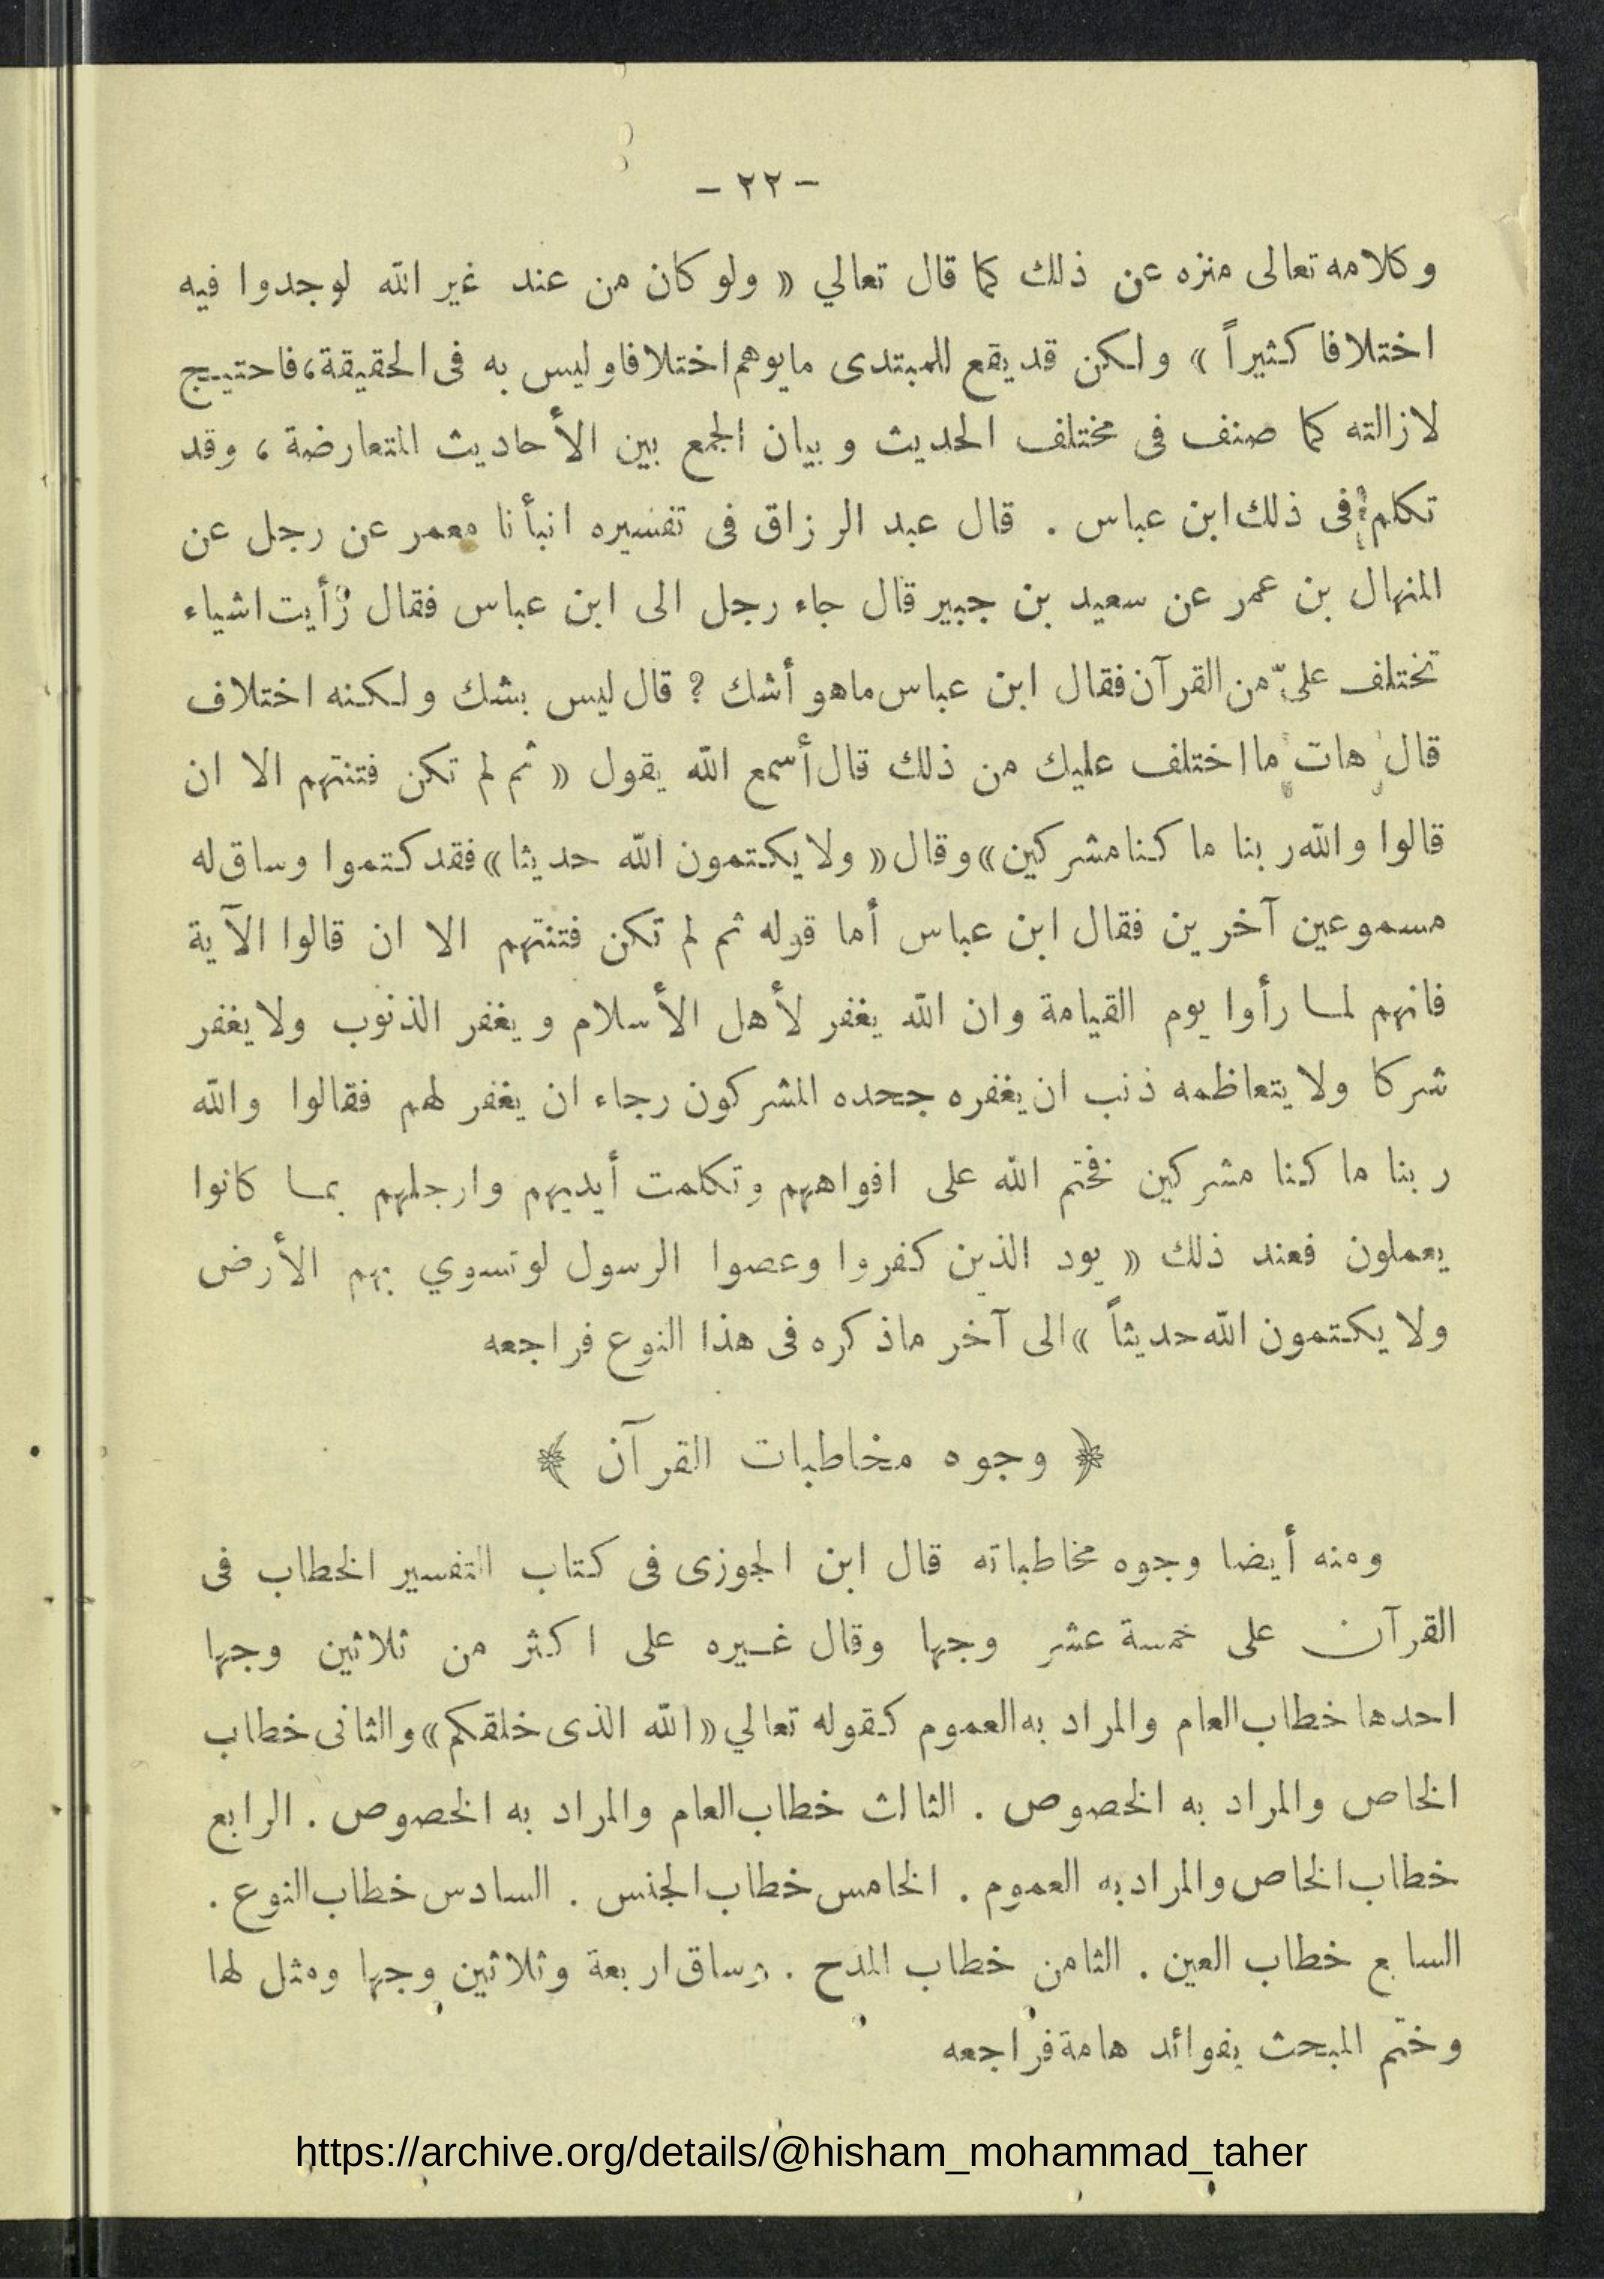 — ٢٢ —
وكلامه تعالى منزه عن ذلك كما قال تعالي « ولو كان من عند غير الله لوجدوا فيه
اختلافا كثيراً » ولكن قد يقع للمبتدى مايوهم اختلافا وليس به فى الحقيقة، فاحتيج
لازالته كما صنف فى مختلف الحديث وبيان الجمع بين الأحاديث المتعارضة ، وقد
تكلم فى ذلك ابن عباس . قال عبد الرزاق فى تفسيره انبأنا معمر عن رجل عن
المنهال بن عمر عن سعيد بن جبير قال جاء رجل الى ابن عباس فقال رأيت اشياء
تختلف علىّ من القرآن فقال ابن عباس ماهو أشك ؟ قال ليس بشك ولكنه اختلاف
قال هات ما اختلف عليك من ذلك قال أسمع الله يقول « ثم لم تكن فتنتهم الا ان
قالوا والله ربنا ما كنا مشركين » وقال « ولا يكتمون الله حديثا » فقد كتموا وساق له
مسموعين آخرين فقال ابن عباس أما قوله ثم لم تكن فتنتهم الا ان قالوا الآية
فانهم لما رأوا يوم القيامة وان الله يغفر لأهل الأسلام ويغفر الذنوب ولا يغفر
شركا ولا يتعاظمه ذنب ان يغفره جحده المشركون رجاء ان يغفر لهم فقالوا والله
ربنا ما كنا مشركين فختم الله على افواههم وتكلمت أيديهم وارجلهم بما كانوا
يعملون فعند ذلك « يود الذين كفروا وعصوا الرسول لو تسوي بهم الأرض
ولا يكتمون الله حديثاً » الى آخر ماذكره فى هذا النوع فراجعه
﴿ وجوه مخاطبات القرآن ﴾
ومنه أيضا وجوه مخاطباته قال ابن الجوزى فى كتاب التفسير الخطاب فى
القرآن على خمسة عشر وجها وقال غيره على اكثر من ثلاثين وجها
احدها خطاب العام والمراد به العموم كقوله تعالي « الله الذى خلقكم » والثانى خطاب
الخاص والمراد به الخصوص . الثالث خطاب العام والمراد به الخصوص . الرابع
خطاب الخاص والمراد به العموم . الخامس خطاب الجنس . السادس خطاب النوع .
السابع خطاب العين . الثامن خطاب المدح . وساق اربعة وثلاثين وجها ومثل لها
وختم المبحث بفوائد هامة فراجعه
https://archive.org/details/@hisham_mohammad_taher